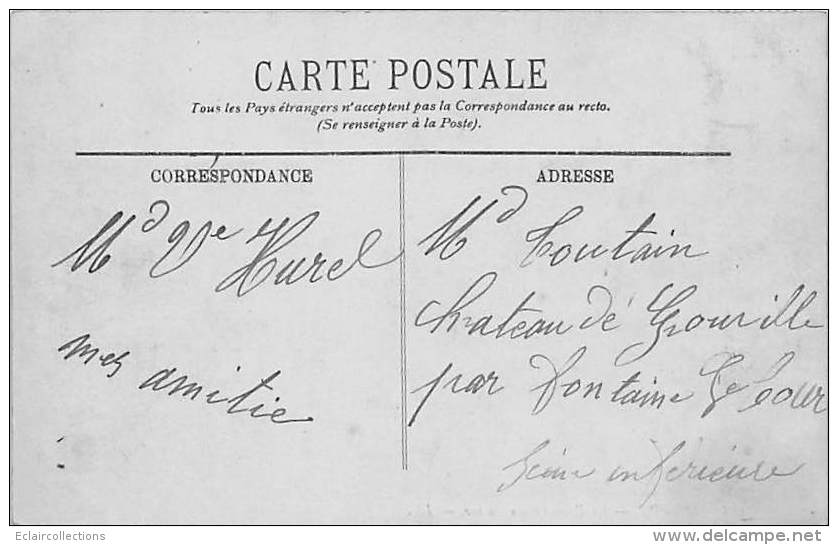 CARTE POSTALE
Tous les Pays étrangers n'acceptent pas la Correspondance au recto.
(Se renseigner à la Poste).
CORRESPONDANCE
Md Ve Hurel
mes amitie
ADRESSE
Md Toutain
chateau de Grouville
par Fontaine le bour
Seine inferieure
Eclaircollections
delcampe.net